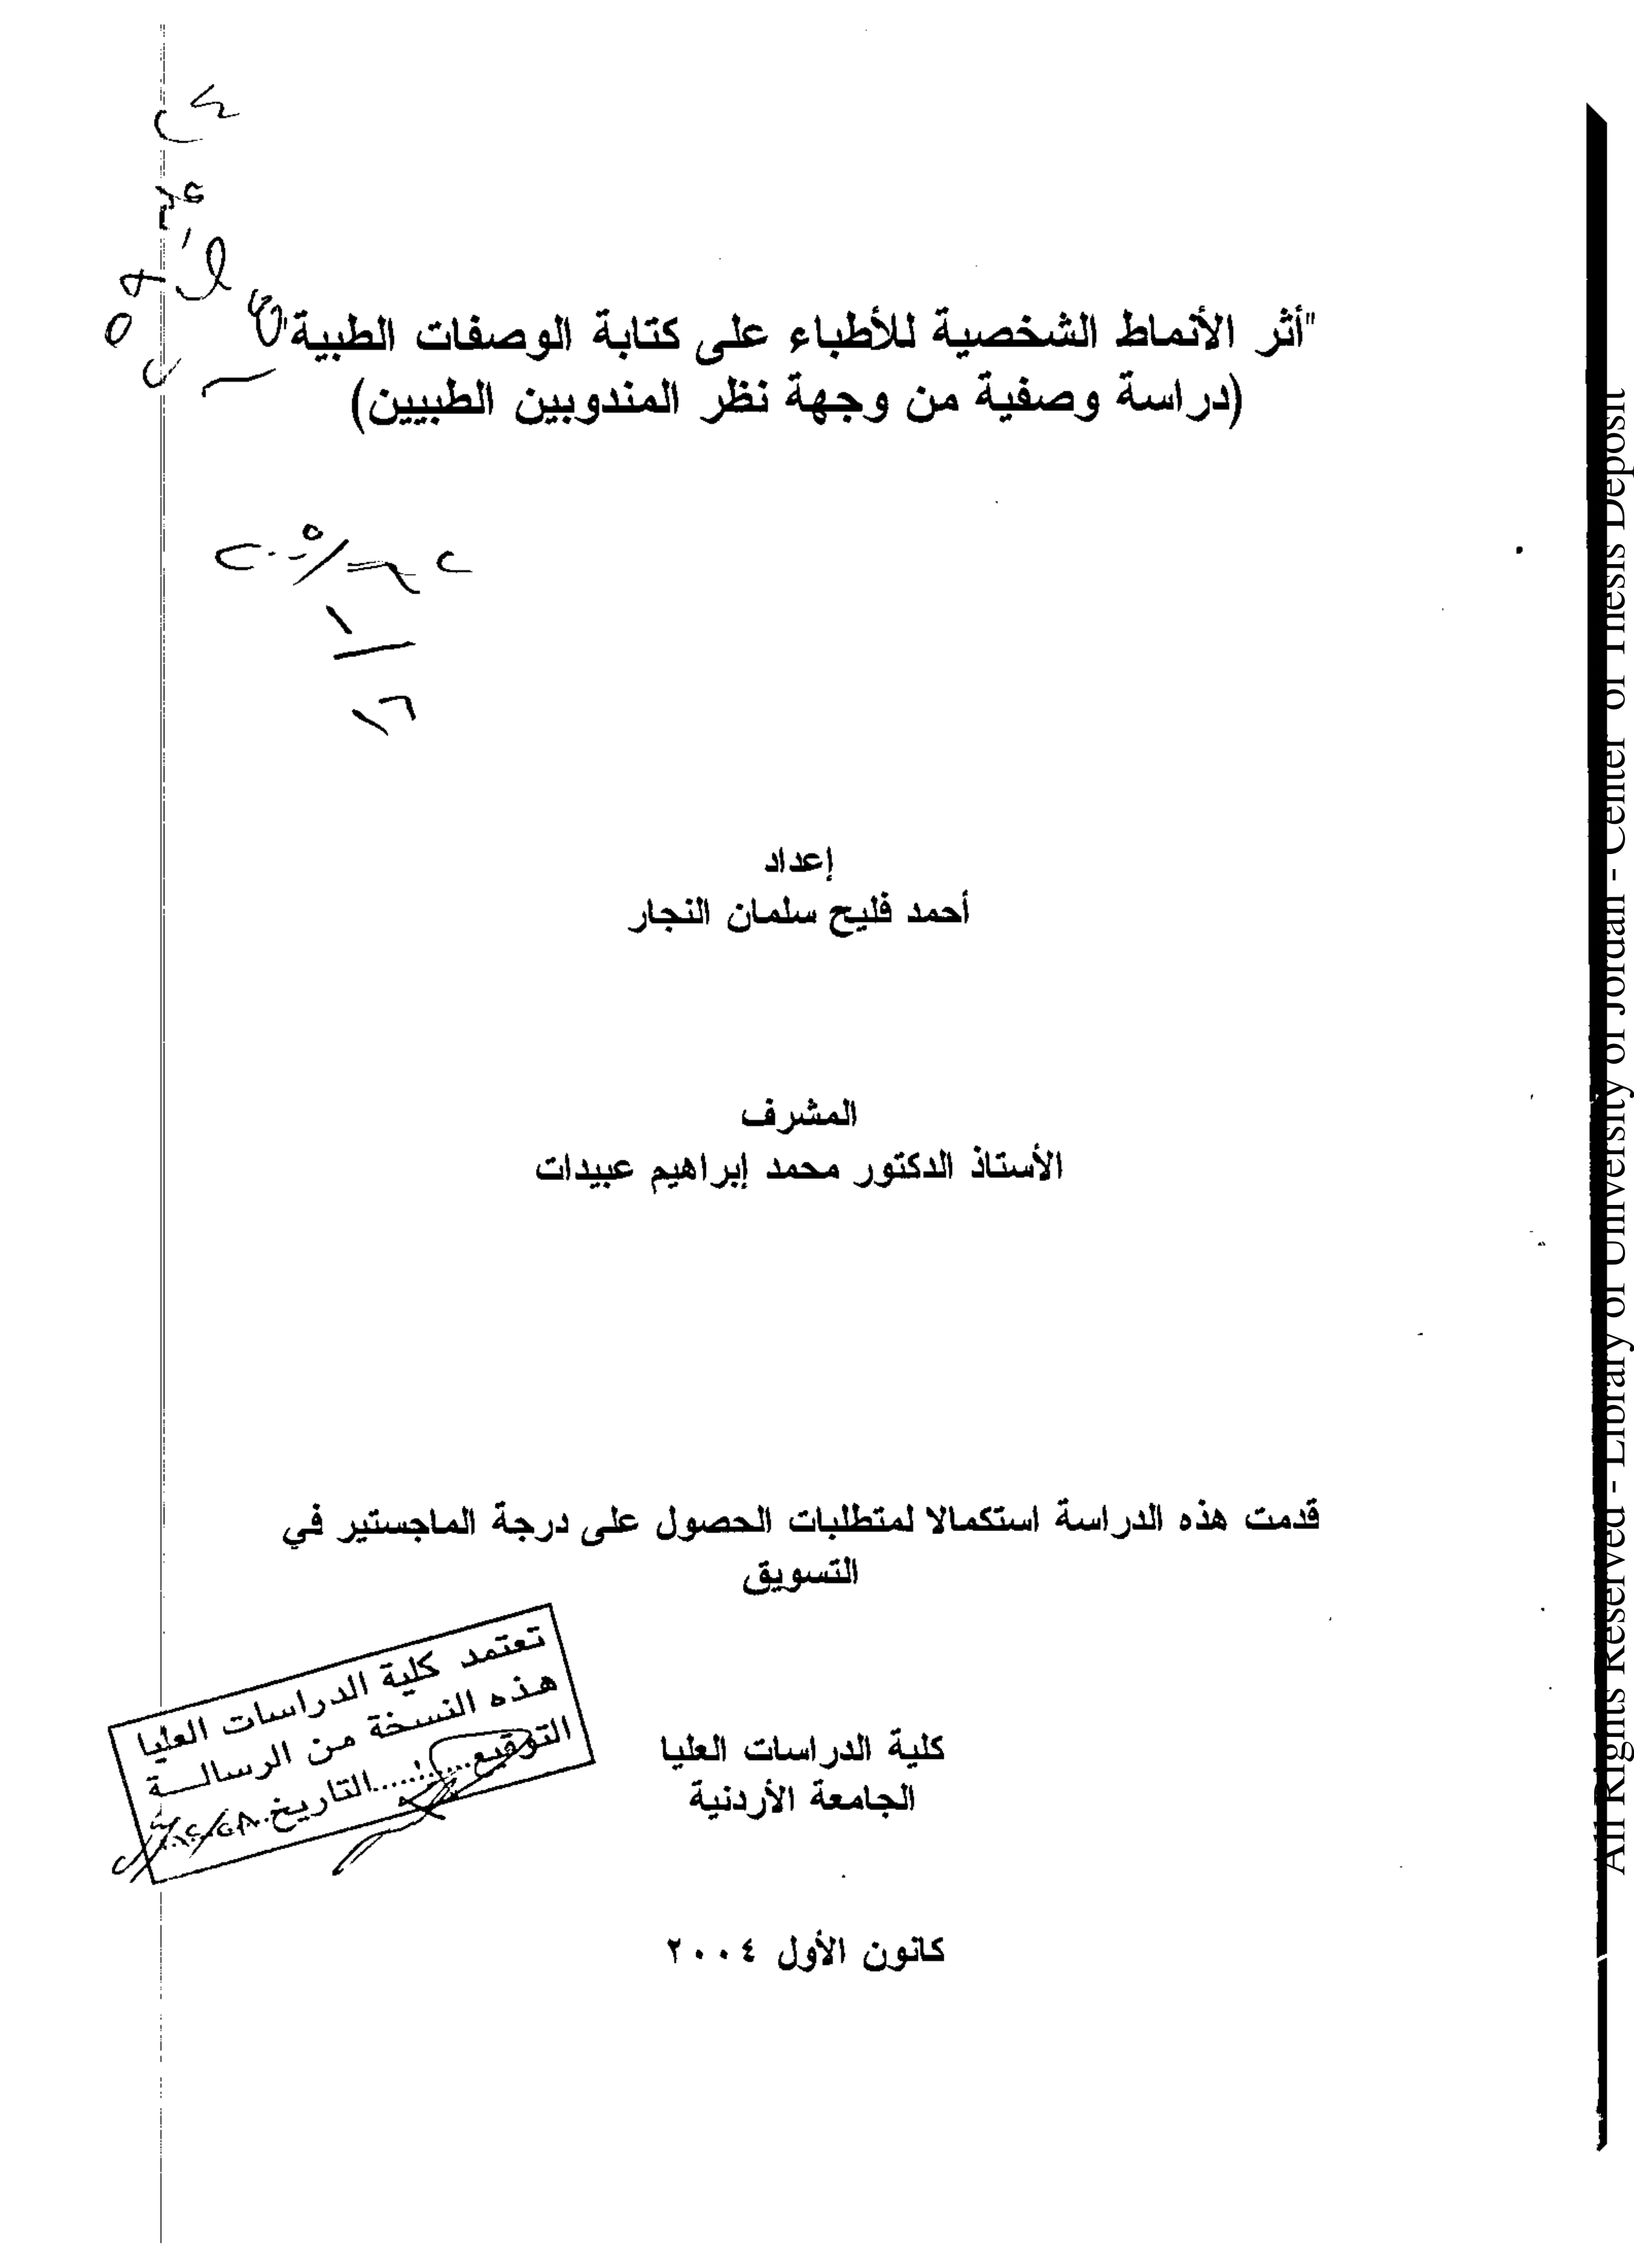 "أثر الأنماط الشخصية للأطباء على كتابة الوصفات الطبية"
(دراسة وصفية من وجهة نظر المندوبين الطبيين)
إعداد
أحمد فليح سلمان النجار
المشرف
الأستاذ الدكتور محمد إبراهيم عبيدات
قدمت هذه الدراسة استكمالا لمتطلبات الحصول على درجة الماجستير في
التسويق
تعتمد كلية الدراسات العليا
هذه النسخة من الرسالـــة
التوقيع............التاريخ
كلية الدراسات العليا
الجامعة الأردنية
كانون الأول ٢٠٠٤
All Rights Reserved - Library of University of Jordan - Center of Thesis Deposit